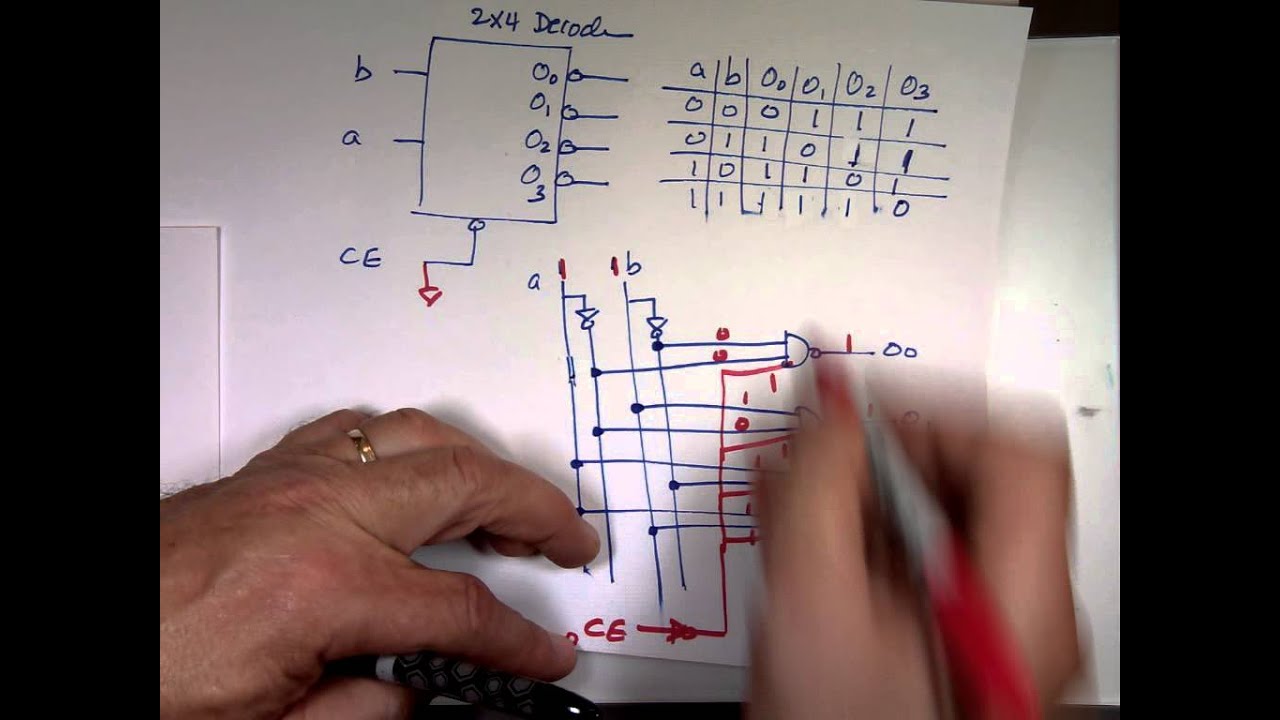 2x4 Decoder
b O0
O1
a O2
O3
CE
a b O0 O1 O2 O3
0 0 0 1 1 1
0 1 1 0 1 1
1 0 1 1 0 1
1 1 1 1 1 0
a 1 1 b
0
0 1 O0
1
1
0 1
1 1
1
1
0 CE